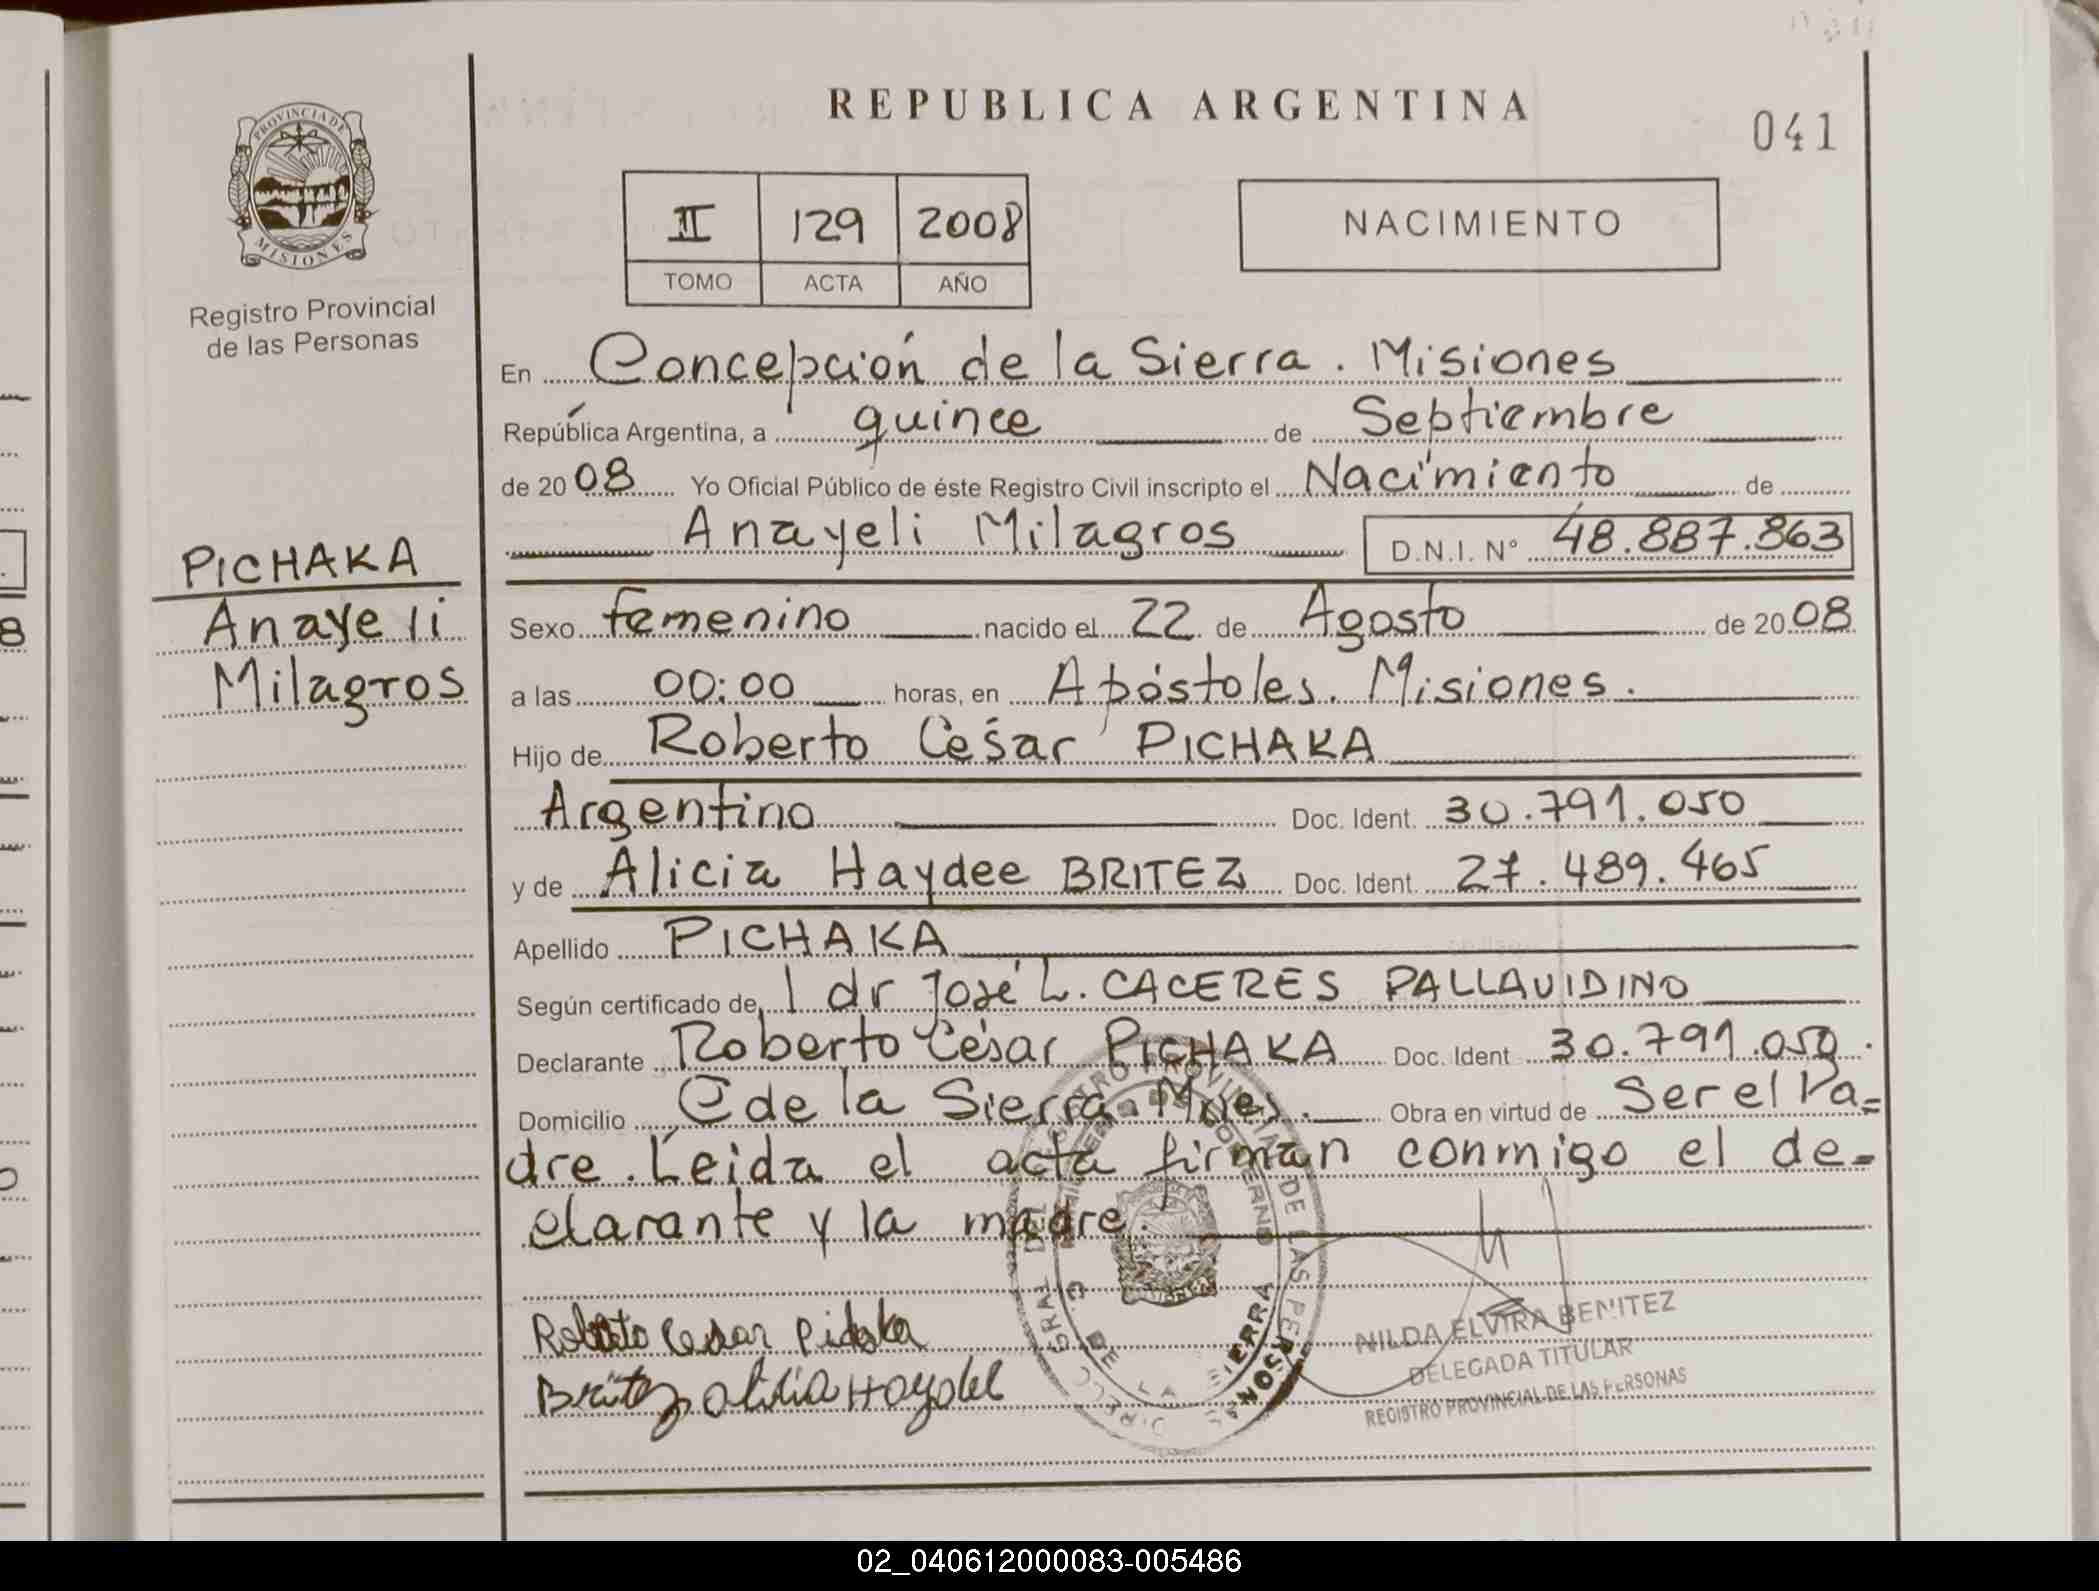 REPUBLICA ARGENTINA
041
PROVINCIA DE
MISIONES
Registro Provincial
de las Personas
II 129 2008
TOMO ACTA AÑO
NACIMIENTO
En Concepción de la Sierra. Misiones
República Argentina, a quince de Septiembre
de 2008 Yo Oficial Público de éste Registro Civil inscripto el Nacimiento de
Anayeli Milagros D.N.I. N° 48.887.863
PICHAKA
Anayeli
Milagros
Sexo femenino nacido el 22 de Agosto de 2008
a las 00:00 horas, en Apóstoles. Misiones.
Hijo de Roberto César PICHAKA
Argentino Doc. Ident. 30.791.050
y de Alicia Haydee BRITEZ Doc. Ident. 27.489.465
Apellido PICHAKA
Según certificado de l dr José L. CACERES PALLAVIDINO
Declarante Roberto César PICHAKA Doc. Ident 30.791.050.
Domicilio C de la Sierra. Mnes. Obra en virtud de Ser el Pa=
dre. Leida el acta firman conmigo el de=
clarante y la madre.
Roberto Cesar Pichaka
Britez Alicia Haydee
NILDA ELVIRA BENITEZ
DELEGADA TITULAR
REGISTRO PROVINCIAL DE LAS PERSONAS
02_040612000083-005486